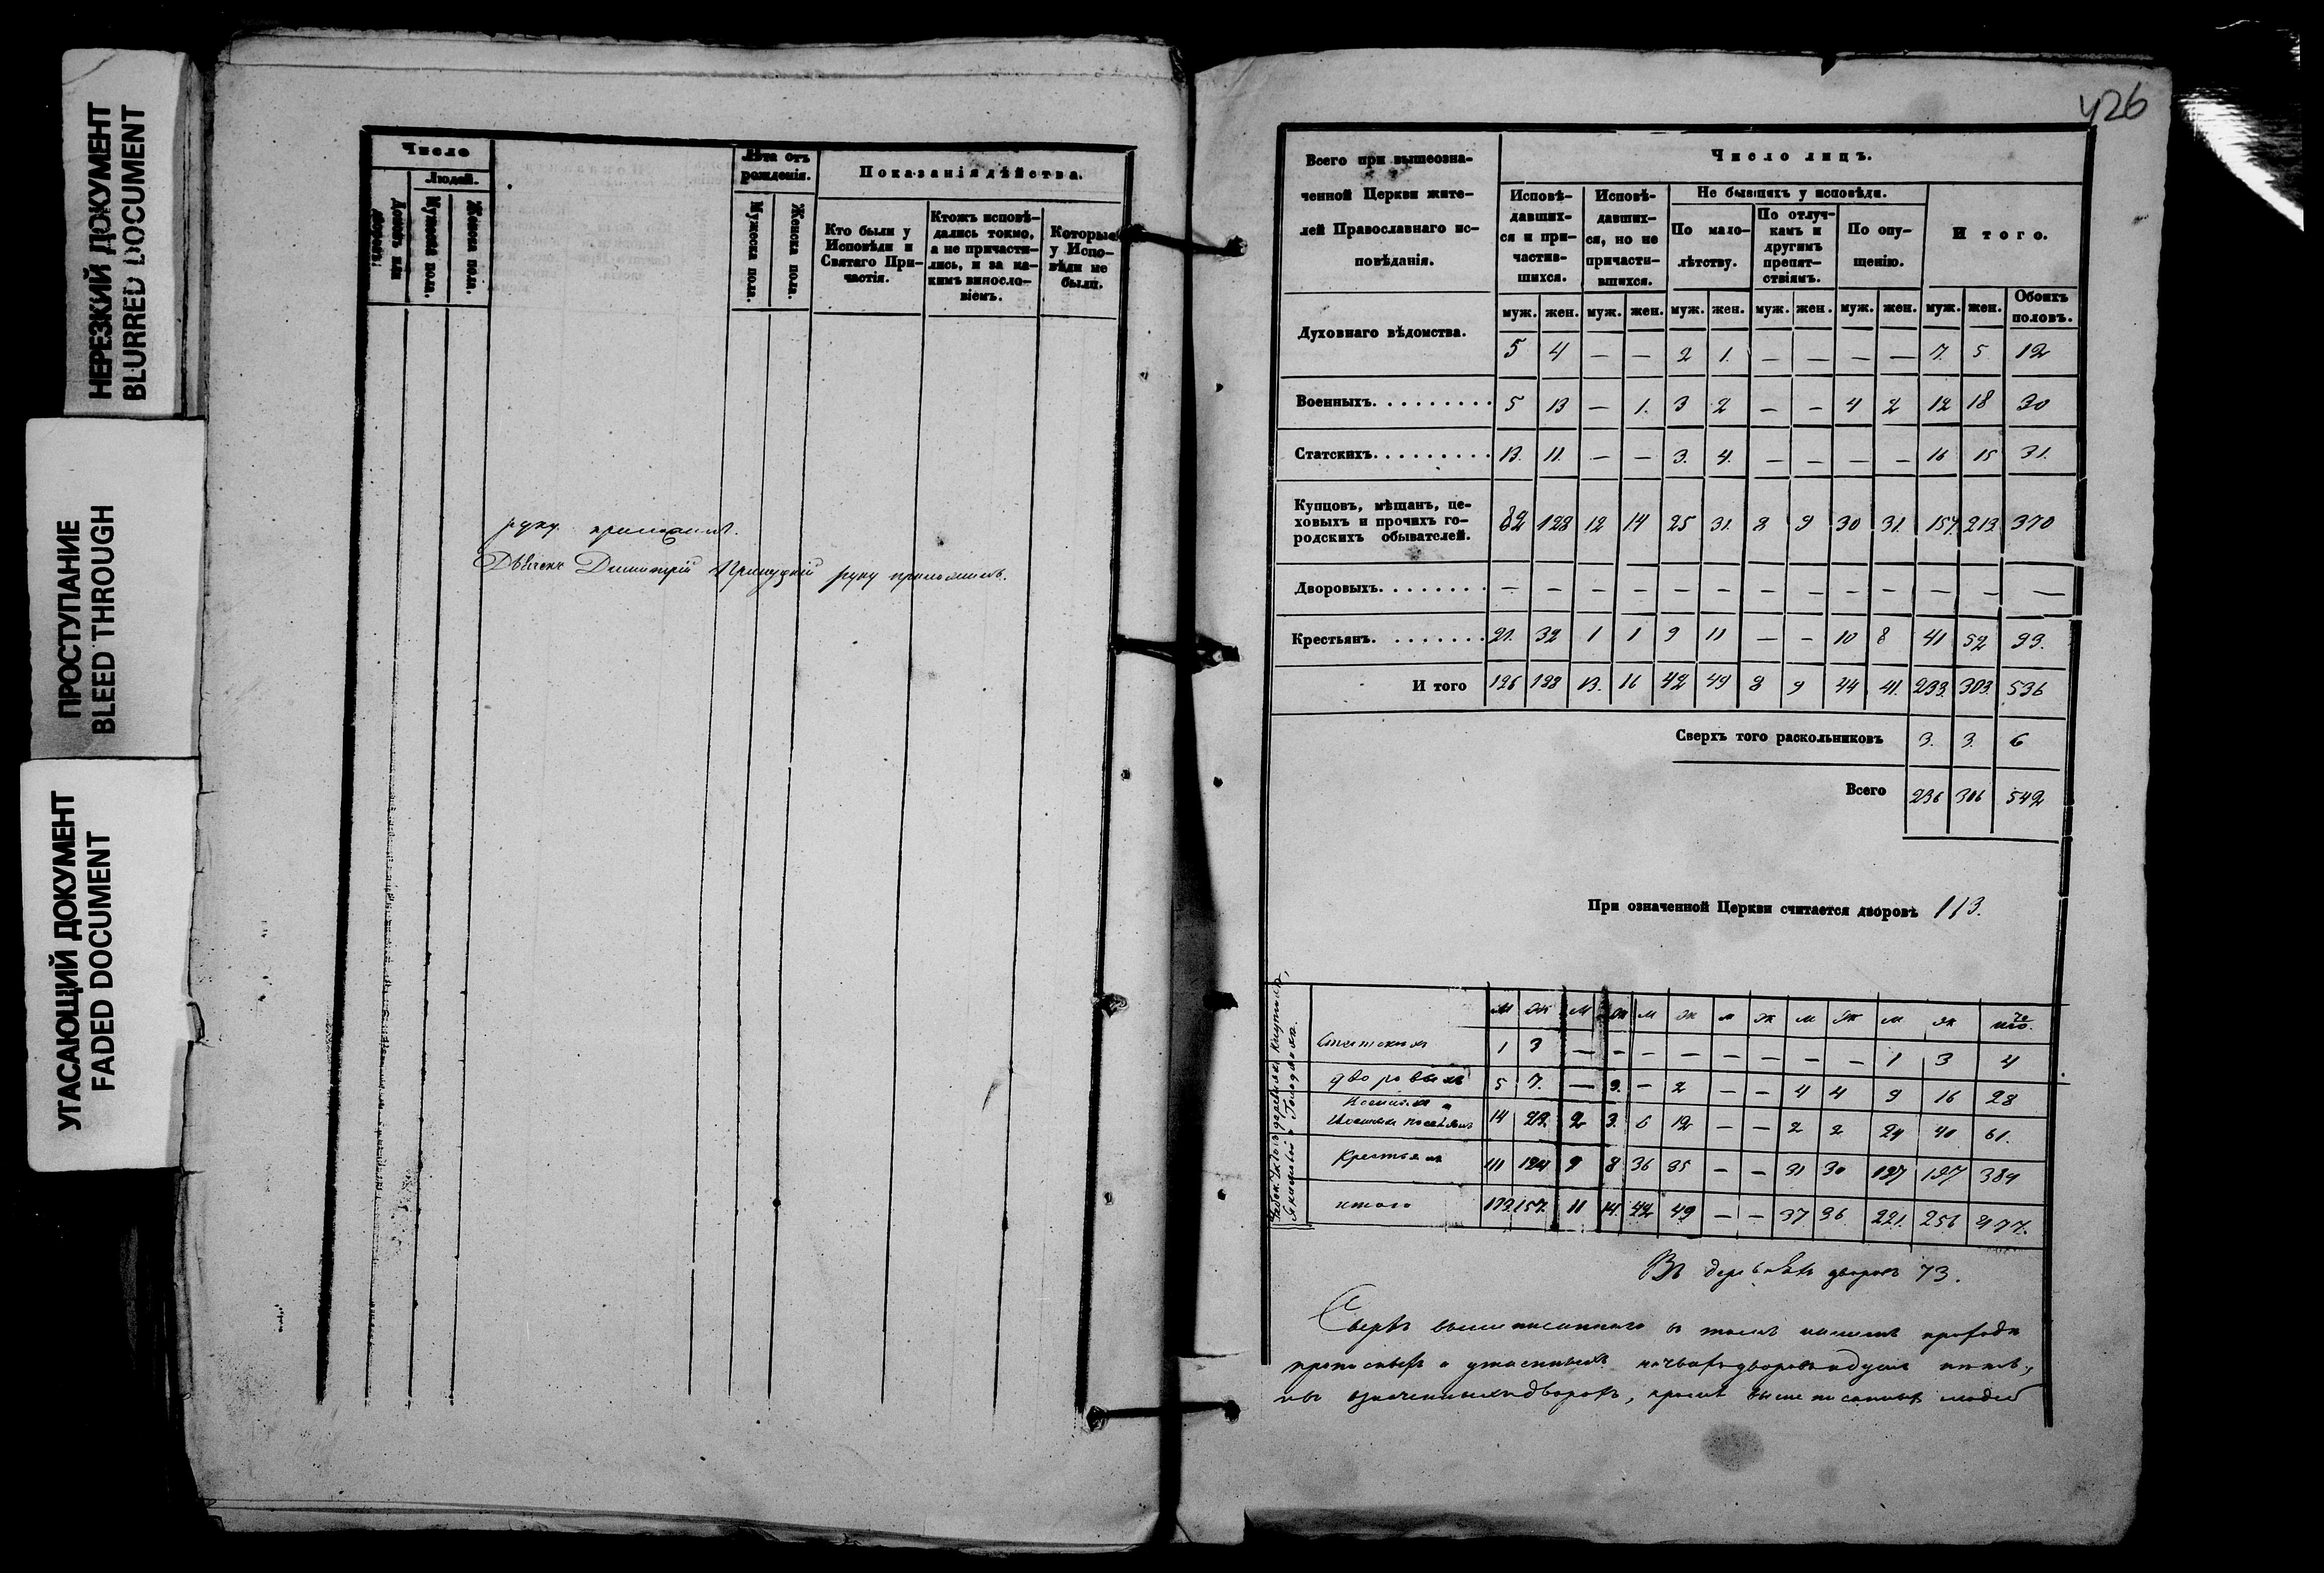 НЕРЕЗКИЙ ДОКУМЕНТ
BLURRED DOCUMENT
ПРОСТУПАНИЕ
BLEED THROUGH
УГАСАЮЩИЙ ДОКУМЕНТ
FADED DOCUMENT
Число
Людей.
Домовъ или дворовъ.
Мужеска пола.
Женска пола.
Лѣта отъ
рожденія.
Мужеска пола.
Женска пола.
Показанія дѣйства.
Кто были у
Исповѣди и
Святаго При-
частія.
Ктожъ исповѣ-
дались токмо,
а не причасти-
лись, и за ка-
кимъ винословіемъ.
Которые
у Испо-
вѣди не
были.
руку приложилъ.
Дьячекъ Димитрій руку приложилъ.
426
Всего при вышеозна-
ченной Церкви жите-
лей Православнаго ис-
повѣданія.
Число лицъ.
Исповѣ-
давших-
ся и при-
частив-
шихся.
Исповѣ-
давших-
ся, но не
причасти-
вшихся.
Не бывшихъ у исповѣди.
По мало-
лѣтству.
По отлуч-
камъ и
другимъ
препят-
ствіямъ.
По опу-
щенію.
Итого.
муж. жен. муж. жен. муж. жен. муж. жен. муж. жен. муж. жен. Обоихъ половъ.
Духовнаго вѣдомства. 5 4 — — 2 1. — — — — 7. 5 12
Военныхъ. 5 13 — 1. 3 2 — — 4 2 12 18 30
Статскихъ. 13. 11. — — 3. 4. — — — — 16 15 31.
Купцовъ, мѣщанъ, це-
ховыхъ и прочихъ го-
родскихъ обывателей. 82 128 12 14 25 31. 8 9 30 31. 157. 213 370
Дворовыхъ. — — — — — — — — — — — — —
Крестьянъ. 21. 32 1 1 9 11 — — 10 8 41 52 93.
И того 126 188 13. 16 42 49 8 9 44 41. 233. 303. 536
Сверхъ того раскольниковъ 3. 3. 6
Всего 236 306 542
При означенной Церкви считается дворовъ 113.
м ж м ж м ж м ж м ж м ж
Статскихъ 1 3 — — — — — — — — 1 3 4
дворовыхъ 5 7. — 3. — 2 — — 4 4 9 16 28
14 22 2 3. 6 12 — — 2 2 24 40 61.
Крестьянъ 111 124 9 8 36 35 — — 31 30 187 197 384
итого 157. 11 14. 42 49 — — 37 36 221. 256 477.
Въ деревняхъ дворовъ 73.
Сверхъ вышеписаннаго въ томъ нашемъ приходѣ
прописныхъ и утаенныхъ ничьихъ дворовъ и душъ нѣтъ,
въ означенныхъ дворахъ, кромѣ вышеписанныхъ людей